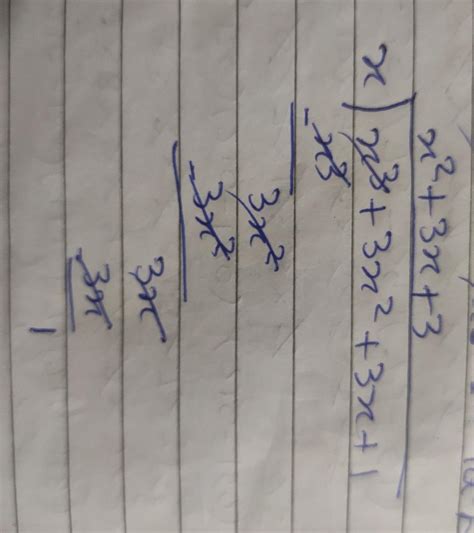 x²+3x+3
x) x³+3x²+3x+1
-x³
3x²
-3x²
3x
3x
1